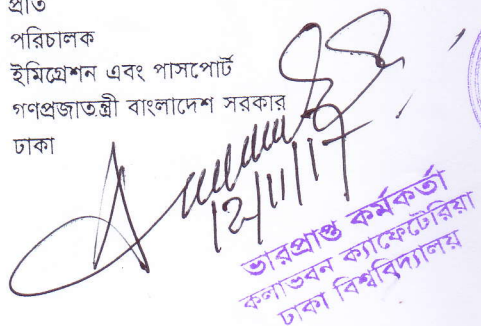 প্রতি
পরিচালক
ইমিগ্রেশন এবং পাসপোর্ট
গণপ্রজাতন্ত্রী বাংলাদেশ সরকার
ঢাকা
12/11/17
ভারপ্রাপ্ত কর্মকর্তা
কলাভবন ক্যাফেটেরিয়া
ঢাকা বিশ্ববিদ্যালয়